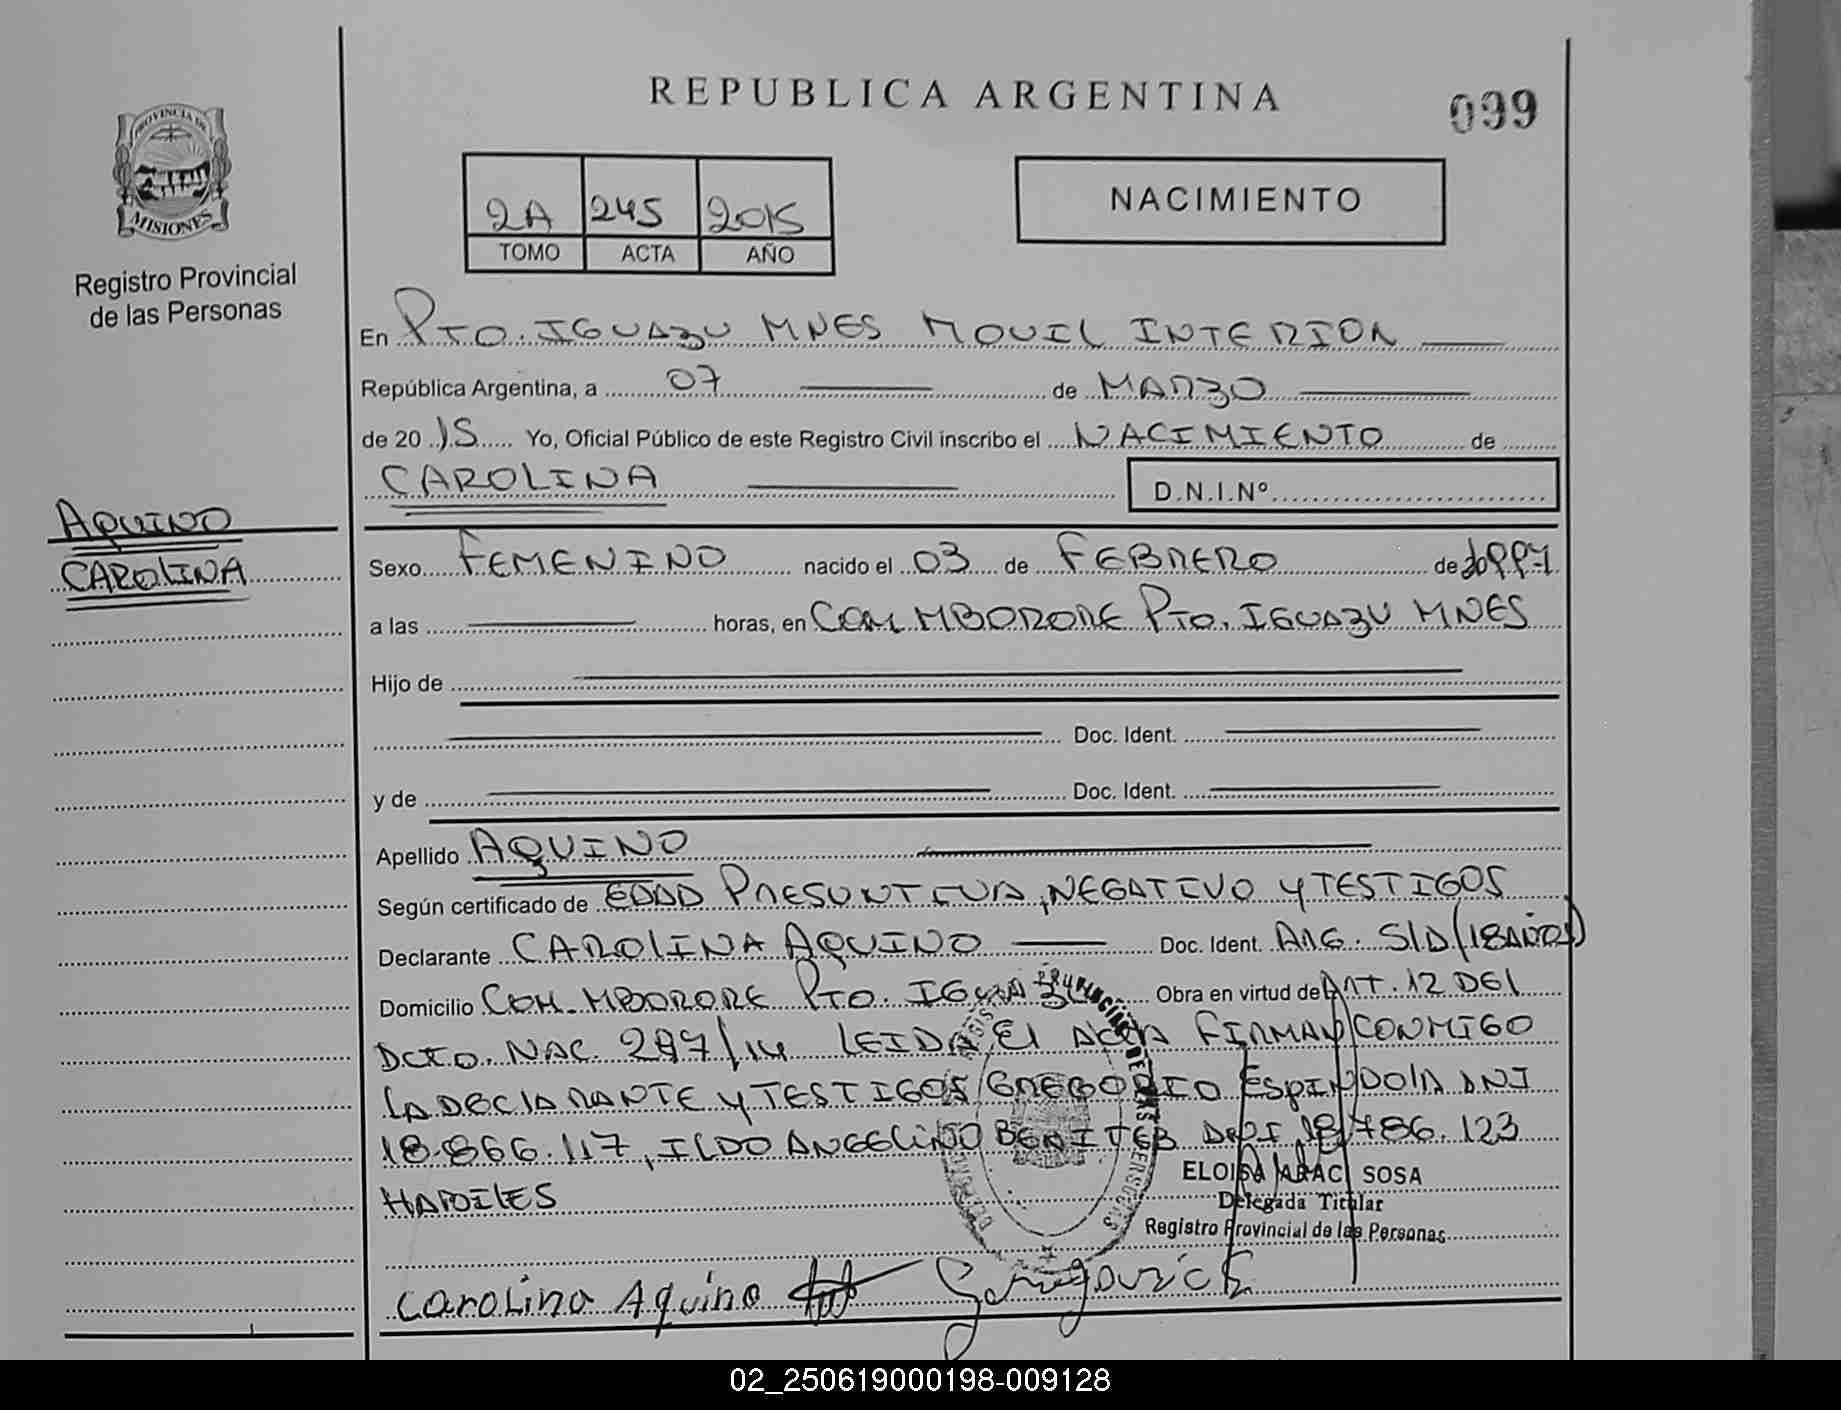 REPUBLICA ARGENTINA
099
PROVINCIA DE MISIONES
Registro Provincial
de las Personas
2A 245 2015
TOMO ACTA AÑO
NACIMIENTO
En PTO. IGUAZU MNES MOVIL INTERIOR
República Argentina, a 07 de MARZO
de 20 15 Yo, Oficial Público de este Registro Civil inscribo el NACIMIENTO de
CAROLINA D.N.I.Nº
AQUINO
CAROLINA
Sexo FEMENINO nacido el 03 de FEBRERO de
a las horas, en COM MBORORE PTO. IGUAZU MNES
Hijo de
Doc. Ident.
y de Doc. Ident.
Apellido AQUINO
Según certificado de EDAD PRESUNTIVA, NEGATIVO Y TESTIGOS
Declarante CAROLINA AQUINO Doc. Ident. ARG. S/D (18 AÑOS)
Domicilio COM. MBORORE PTO. IGUAZU Obra en virtud de ART. 12 DEL
DCTO. NAC. 297/14 LEIDA EL ACTA FIRMAN CONMIGO
LA DECLARANTE Y TESTIGOS GREGORIO ESPINDOLA DNI
18.866.117, ILDO ANGELINO BENITEZ DNI 18.786.123
HABILES
ELOISA ARACI SOSA
Delegada Titular
Registro Provincial de las Personas
Carolina Aquino
02_250619000198-009128